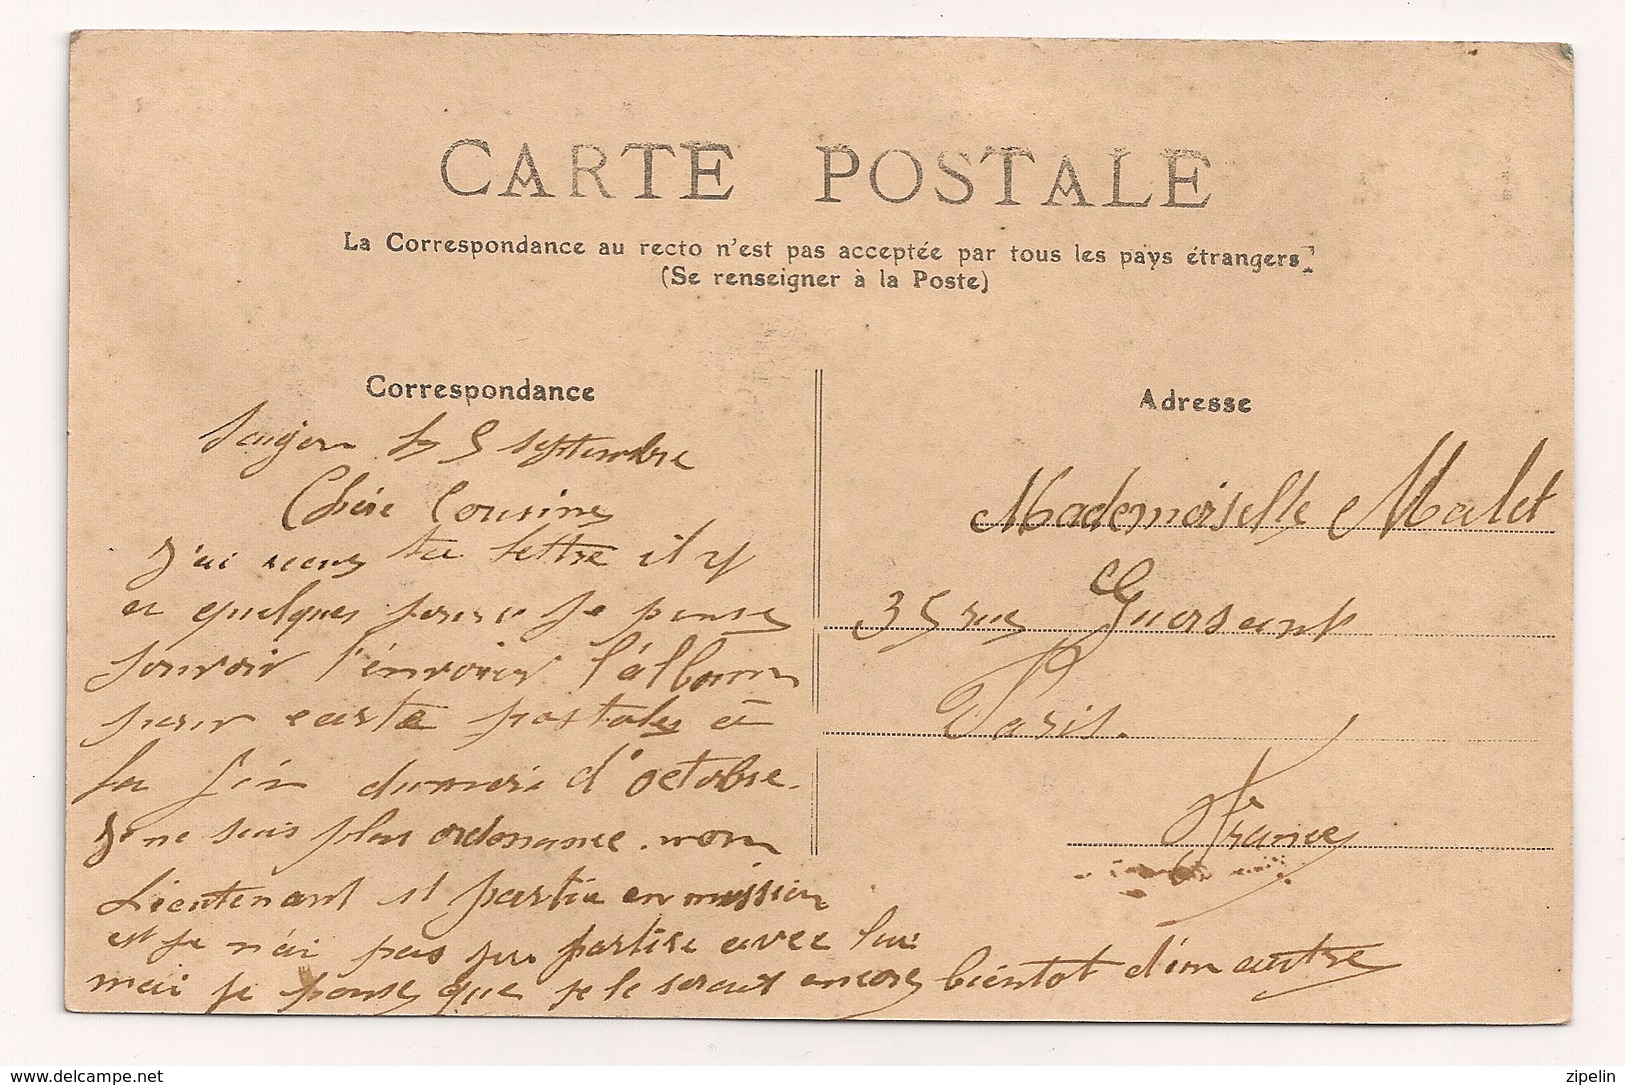 CARTE POSTALE
La Correspondance au recto n'est pas acceptée par tous les pays étrangers.
(Se renseigner à la Poste)
Correspondance
Saigon le 5 septembre
Chère Cousine
J'ai reçus ta lettre il y
a quelques jours je pense
pouvoir l'énvoier l'álbum
pour carte postales à
la fin du mois d'octobre.
Je ne suis plus ordonance. mon
Lieutenant et partie en mission
est je n'ai pas pu partire avec lui
mai je pense que je le seraix encore bientot d'un autre
Adresse
Mademoiselle Malet
35 rue Guersant
Paris.
France
delcampe.net
zipelin